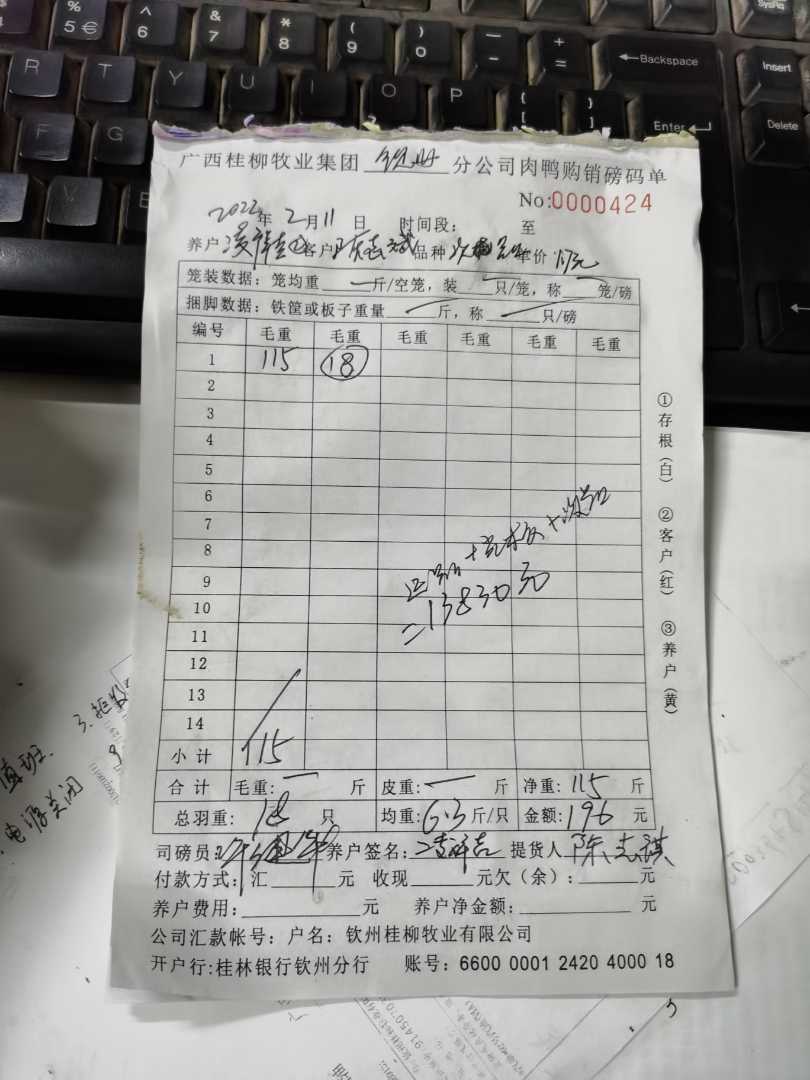 % 5 € ^ 6 & 7 * 8 ( 9 ) 0 — - + = ←Backspace Insert SysRq
R T Y U I O P { [ } ] Enter Delete
F G
广西桂柳牧业集团 钦州 分公司肉鸭购销磅码单
No:0000424
2022年 2月11日 时间段: 至
养户 客户 品种 单价 1.7元
笼装数据:笼均重 斤/空笼,装 只/笼,称 笼/磅
捆脚数据:铁筐或板子重量 斤,称 只/磅
编号 毛重 毛重 毛重 毛重 毛重 毛重
1 115 18
2
3
4
5
6
7
8
9
10
11
12
13
14
小计 115
=13830元
合计 毛重: 斤 皮重: 斤 净重:115斤
总羽重:18只 均重:6.3斤/只 金额:196元
司磅员: 养户签名: 提货人
付款方式:汇 元 收现 元欠(余): 元
养户费用: 元 养户净金额: 元
公司汇款帐号:户名:钦州桂柳牧业有限公司
开户行:桂林银行钦州分行 账号:6600 0001 2420 4000 18
①存根(白) ②客户(红) ③养户(黄)
值班.
电源关闭